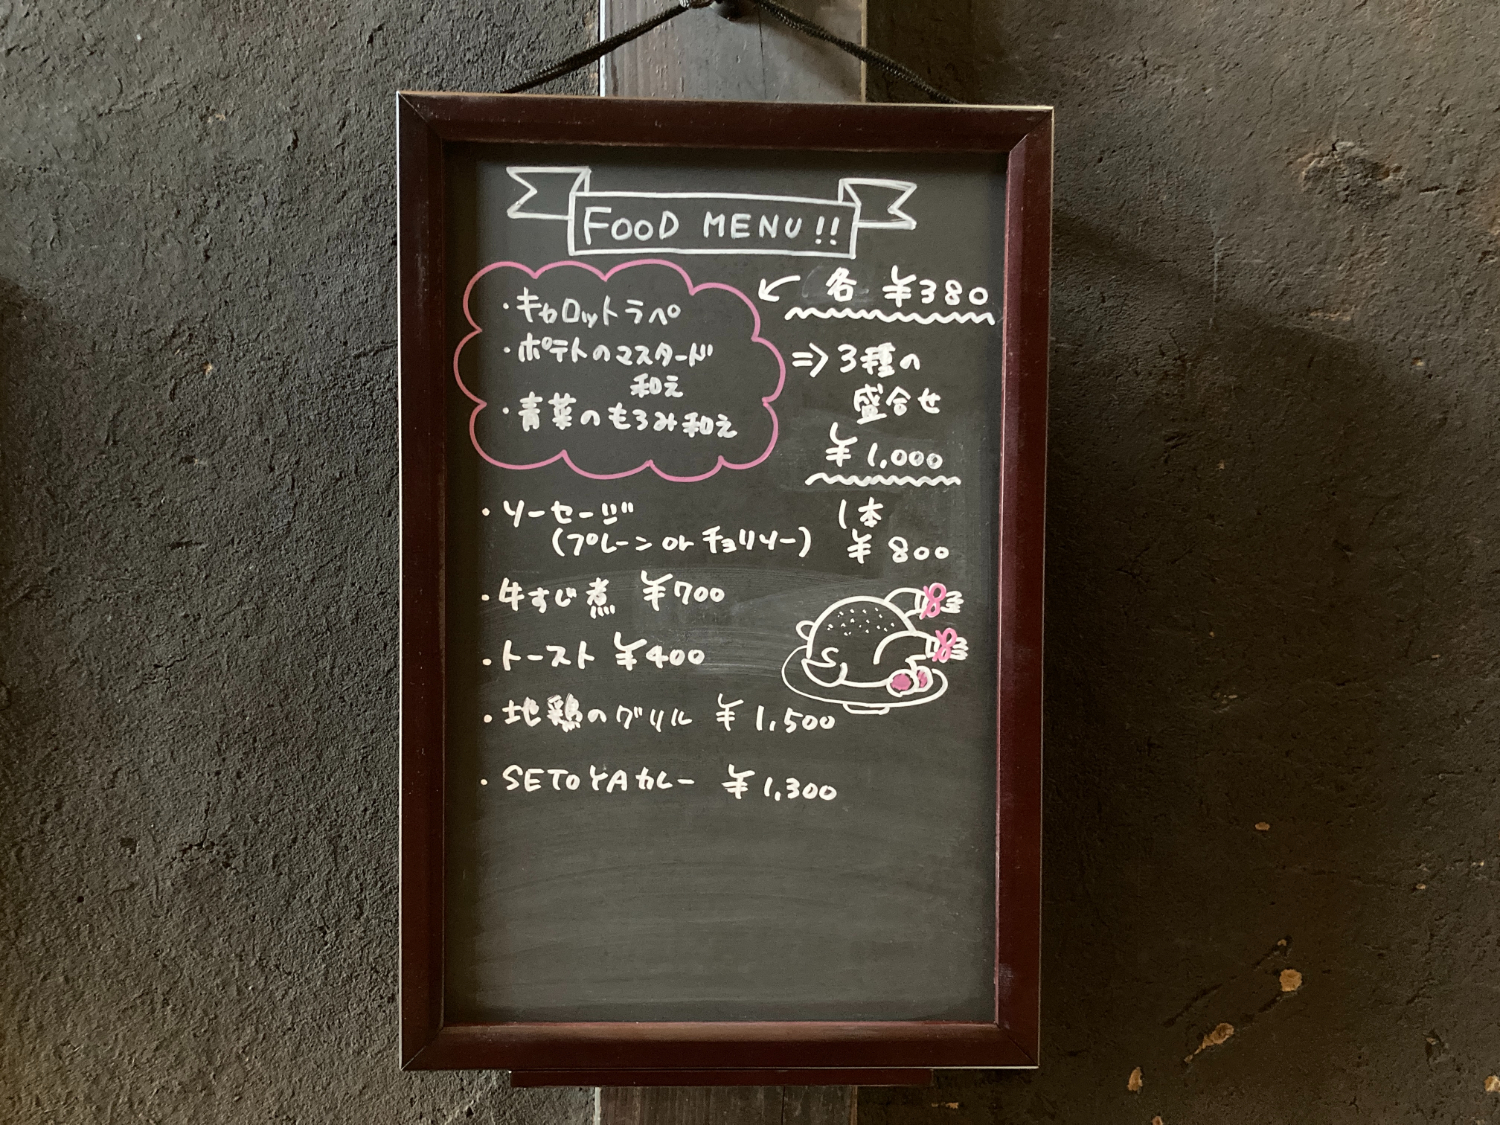 FOOD MENU!!
・キャロットラペ
・ポテトのマスタード
和え
・青菜のもろみ和え
↙ 各 ¥380
⇒ 3種の
盛合せ
¥1,000
・ソーセージ
(プレーン or チョリソー)
1本
¥800
・牛すじ煮 ¥700
・トースト ¥400
・地鶏のグリル ¥1,500
・SETOYAカレー ¥1,300